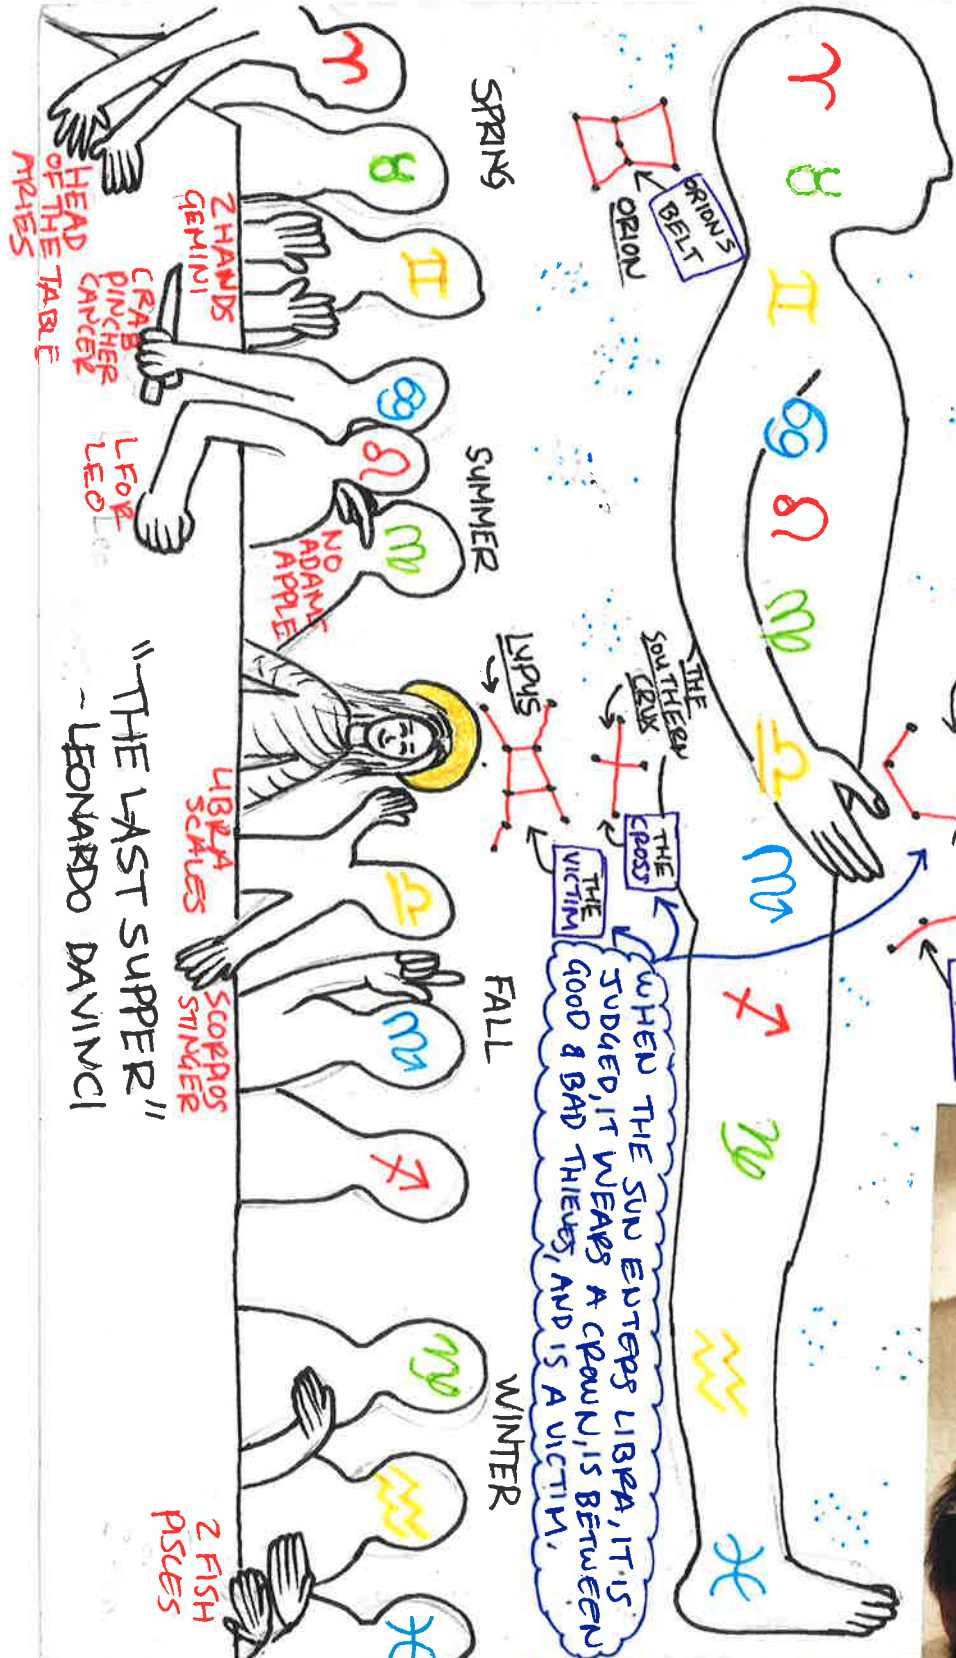 ORION'S
BELT
ORION
THE
SOUTHERN
CRUX
THE
CROSS
LUPUS
THE
VICTIM
WHEN THE SUN ENTERS LIBRA, IT IS
JUDGED, IT WEARS A CROWN, IS BETWEEN
GOOD & BAD THIEVES, AND IS A VICTIM.
SPRING
SUMMER
FALL
WINTER
HEAD
OF THE TABLE
ARIES
2 HANDS
GEMINI
CRAB
PINCHER
CANCER
L FOR
LEO
NO
ADAMS
APPLE
LIBRA
SCALES
SCORPIOS
STINGER
2 FISH
PISCES
"THE LAST SUPPER"
- LEONARDO DAVINCI